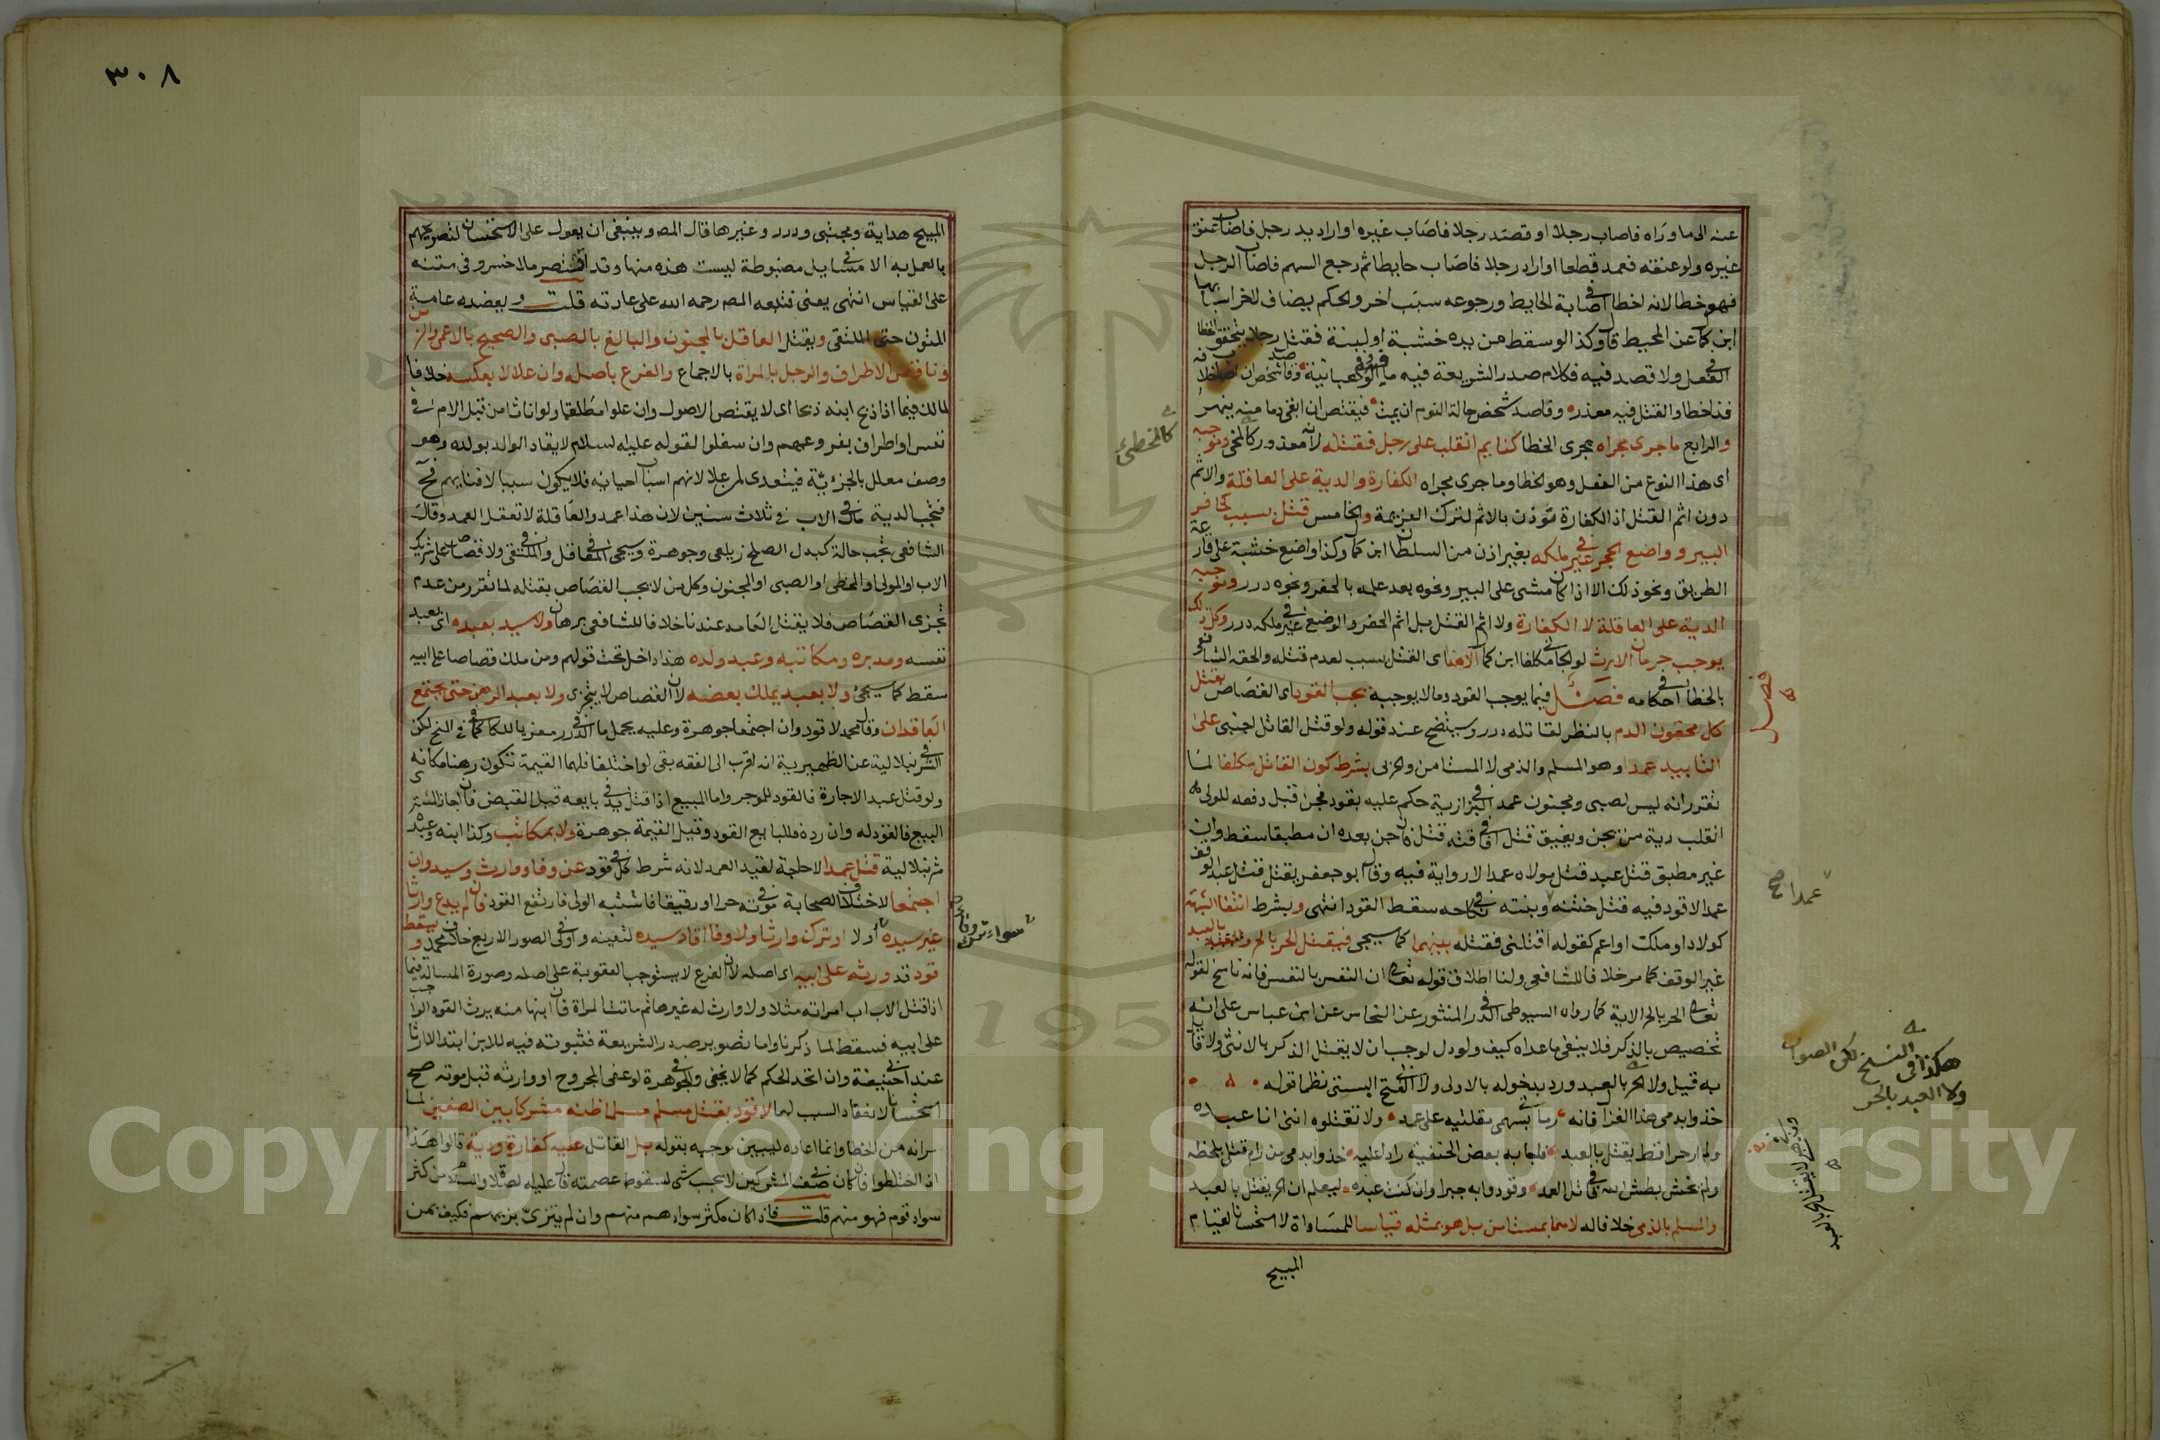 عنه الى ما وراه فاصاب رجلا او قصد رجلا فاصاب غيره او اراد يد رجل فاصاب عنق
غيره ولو عنقه فعمد قطعا او اراد رجلا فاصاب حايطا ثم رجع السهم فاصاب الرجل
فهو خطا لانه اخطا فى اصابة الحايط ورجوعه سبب اخر والحكم يضاف لاخر اسبابها
ابن كمال عن المحيط قال وكذا لو سقط من يده خشبة او لبنة فقتل رجلا يتحقق الخطا
فى الفعل ولا قصد فيه فكلام صدر الشريعة فيه ما فيه
فذا خطا والقتل فيه معذر وقاصد شخص حالة النوم ان يمت فيقتص ان ابقى دما منه ينهر
والرابع ما جرى مجراه مجرى الخطا كنايم انقلب على رجل فقتله لانه معذور كالمخطى وموجبه
اى هذا النوع من الفعل وهو الخطا وما جرى مجراه الكفارة والدية على العاقلة والاثم
دون اثم القتل اذ الكفارة تؤذن بالاثم لترك العزيمة والخامس قتل بسبب كحافر
البير وواضع الحجر فى غير ملكه بغير اذن من السلطان ابن كمال وكذا واضع خشبة على قارعة
الطريق ونحو ذلك الا اذا كان مشى على البير ونحوه بعد علمه بالحفر ونحوه درر وموجبه
الدية على العاقلة لا الكفارة ولا اثم القتل بل اثم الحفر والوضع فى غير ملكه درر وكل ذلك
يوجب حرمان الارث لو الجانى مكلفا ابن كمال الا هذا اى القتل بسبب لعدم قتله والحقه الشافعى
بالخطا فى احكامه فصل فيما يوجب القود وما لا يوجبه يجب القود اى القصاص بقتل
كل محقون الدم بالنظر لقاتله درر وسيتضح عند قوله ولو قتل القاتل اجنبى على
التابيد عمدا وهو المسلم والذمى لا المستامن والحربى بشرط كون القاتل مكلفا لما
تقرر انه ليس لصبى ومجنون عمد فى البزازية حكم عليه بقود فجن قبل دفعه للولى
انقلب دية من يجن ويفيق قتل فى افاقته قتل فان جن بعده ان مطبقا سقط وان
غير مطبق قتل عبد قتل مولاه عمدا لا رواية فيه وقال ابو جعفر يقتل قتل عبد الوقف
عمدا لا قود فيه قتل ختنه وبنته فى نكاحه سقط القود انتهى وبشرط انتفا الشبهة
كولاد او ملك او اعم كقوله اقتلنى فقتله بينهما كما سيجى فيقتل الحر بالحر وبالعبد
غير الوقف كما مر خلافا للشافعى ولنا اطلاق قوله تعالى ان النفس بالنفس فانه ناسخ لقوله
تعالى الحر بالحر الاية كما رواه السيوطى فى الدر المنثور عن النحاس عن ابن عباس على انه
تخصيص بالذكر فلا ينفى ما عداه كيف ولو دل لوجب ان لا يقتل الذكر بالانثى ولا قايل
به قيل ولا الحر بالعبد ورد بدخوله بالاولى ولابى الفتح البستى نظما قوله
خذوا بدمى هذا الغزال فانه رمانى بسهمى مقلتيه على عمد ولا تقتلوه اننى انا عبده
ولم ار حرا قط يقتل بالعبد فاجابه بعض الحنفية رادا عليه خذوا بدمى من رام قتلى بلحظه
ولم يخش بطش الله فى قاتل العمد وقودوا به جبرا وان كنت عبده ليعلم ان الحر يقتل بالعبد
والمسلم بالذمى خلافا له لا هما بمستامن بل هو بمثله قياسا للمساواة لا استحسانا لقيام
المبيح
كالمخطئ
فصل
عمدا صح
هكذا فى النسخ لكن الصواب
ولا العبد بالحر
٣٠٨
المبيح هداية ومجتبى ودرر وغيرها قال المص وينبغى ان يعول على الاستحسان لتصريحهم
بالعمل به الا فى مسايل مضبوطة ليست هذه منها وقد اقتصر ملا خسرو فى متنه
على القياس انتهى يعنى فتبعه المص رحمه الله على عادته قلت ويعضده عامة
المتون حتى الملتقى ويقتل العاقل بالمجنون والبالغ بالصبى والصحيح بالاعمى والزمن
وناقص الاطراف والرجل بالمراة بالاجماع والفرع باصله وان علا لا بعكسه خلافا
لمالك فيما اذا ذبح ابنه ذبحا اى لا يقتص الاصول وان علوا مطلقا ولو اناثا من قبل الام فى
نفس او اطراف بفروعهم وان سفلوا لقوله عليه السلام لا يقاد الوالد بولده وهو
وصف معلل بالجزئية فيتعدى لمن علا لانهم اسباب احيائه فلا يكون سببا لافنايهم فحينئذ
فتجب الدية فى مال الاب فى ثلاث سنين لان هذا عمد والعاقلة لا تعقل العمد وقال
الشافعى تجب حالة كبدل الصلح زيلعى وجوهرة وسيجى فى المعاقل وفى الملتقى ولا قصاص على شريك
الاب او المولى او المخطى او الصبى او المجنون وكل من لا يجب القصاص بقتله لما تقرر من عدم
تجزى القصاص فلا يقتل العامد عندنا خلافا للشافعى برهان ولا سيد بعبده اى بعبد
نفسه ومدبره ومكاتبه وعبد ولده هذا داخل تحت قولهم ومن ملك قصاصا على ابيه
سقط كما سيجى ولا بعبد يملك بعضه لان القصاص لا يتجزى ولا بعبد الرهن حتى يجتمع
العاقدان وقال محمد لا قود وان اجتمعا جوهرة وعليه يحمل ما فى الدرر معزيا للكافى كما فى المنح لكن
فى الشرنبلالية عن الظهيرية انه اقرب الى الفقه بقى لو اختلفا فلهما القيمة تكون رهنا مكانه
ولو قتل عبد الاجارة فالقود للموجر واما المبيع اذا قتل فى يد بايعه قبل القبض فان اجاز المشترى
البيع فالقود له وان رده فللبايع القود وقيل القيمة جوهرة ولا بمكاتب وكذا ابنه وعبده
شرنبلالية قتل عمدا لا حاجة لقيد العمد لانه شرط فى كل قود عن وفا ووارث وسيد وان
اجتمعا لاختلاف الصحابة فى موته حرا او رقيقا فاشتبه الولى فارتفع القود فان لم يدع وارثا
غير سيده او لا او ترك وارثا ولا وفا اقاد سيده لتعينه وفى اولى الصور الاربع خلاف محمد ويسقط
قود قد ورثه على ابيه اى اصله لان الفرع لا يستوجب العقوبة على اصله وصورة المسالة فيما
اذا قتل الاب اب امراته مثلا ولا وارث له غيرها ثم ماتت المراة فان ابنها منه يرث القود الواجب
على ابيه فسقط لما ذكرنا واما تصوير صدر الشريعة فثبوته فيه للابن ابتدا لا ارثا
عند ابى حنيفة وان اتحد الحكم كما لا يخفى وفى الجوهرة لو عفى المجروح او وارثه قبل موته صح
استحسانا لانعقاد السبب لهما لا قود بقتل مسلم مسلما ظنه مشركا بين الصفين لما
مر انه من الخطا وانما اعاده ليبين موجبه بقوله بل القاتل عليه كفارة ودية قالوا هذا
اذا اختلطوا فان كان فى صف المشركين لا يجب شى لسقوط عصمته قال عليه الصلاة والسلام من كثر
سواد قوم فهو منهم قلت فاذا كان مكثر سوادهم منهم وان لم يتزى بزيهم فكيف بمن